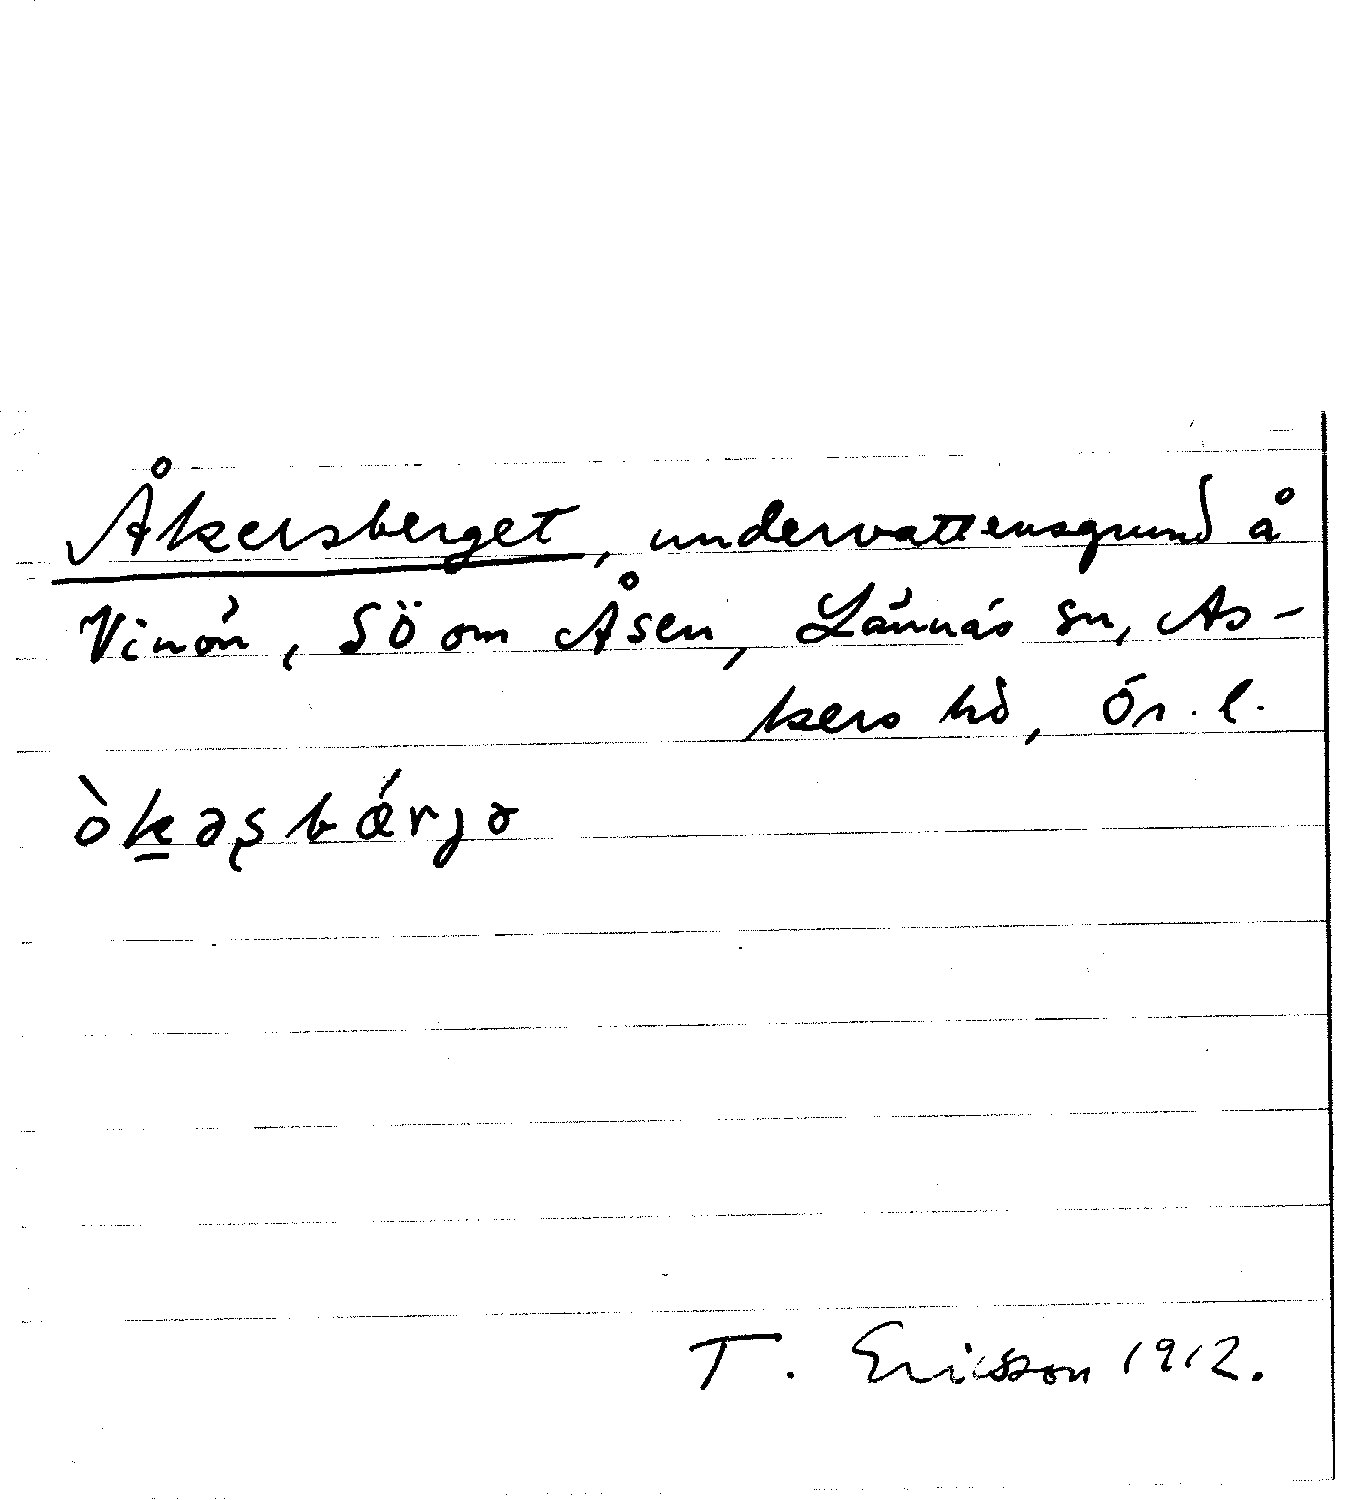 Åkersberget, undervattensgrund å
Vinön, SÖ om Åsen, Lännäs sn, As-
kers hd, Ör. l.
òk̲əʂbǽrjə
T. Ericsson 1912.